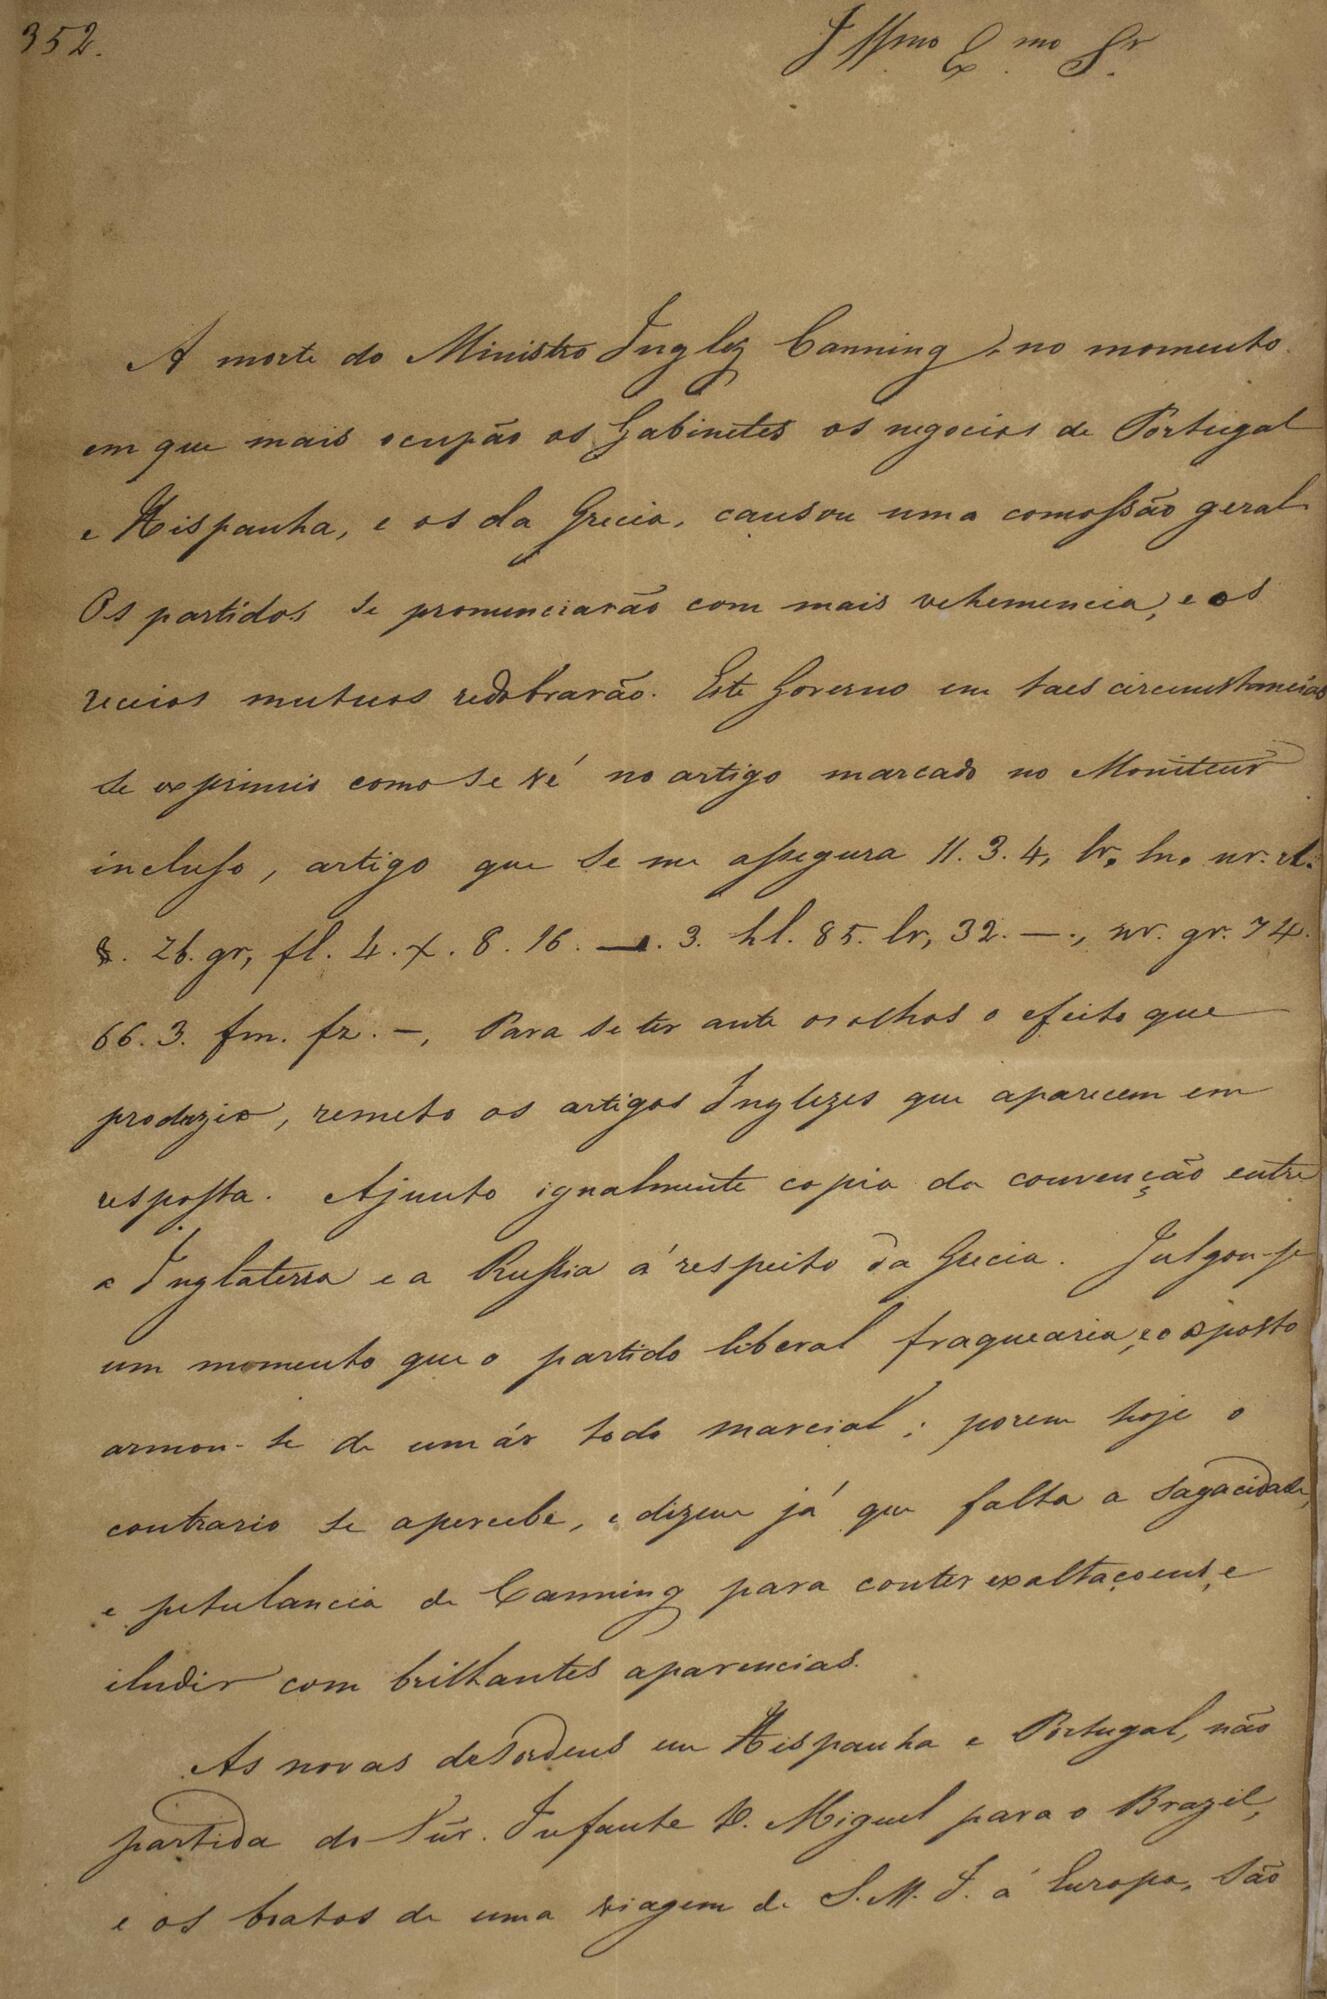 352.
Illmo Ex.mo Sr.
A morte do Ministro Inglez Canning, no momento
em que mais ocupão os Gabinetes os negocios de Portugal
e Hispanha, e os da Grecia, causou uma comossão geral
Os partidos se pronunciarão com mais vehemencia, e os
receios mutuos redobrarão. Este Governo em taes circumstancias
se exprimio como se vé no artigo marcado no Moniteur
incluso, artigo que se me assegura 11. 3. 4, lr. ln. nr. rl.
26. gr, fl. 4. x. 8. 16. —. 3. hl. 85. lr, 32. —., nr. gr. 74.
66. 3. fm. fr. —, Para se ter ante os olhos o efeito que
produzio, remeto os artigos Inglezes que aparecem em
resposta. Ajunto igualmente copia da convenção entre
a Inglaterra e a Russia á respeito da Grecia. Julgou-se
um momento que o partido liberal fraquearia, e o oposto
armou-se de um ár todo marcial; porem hoje o
contrario se apercebe, e dizem já que falta a sagacidade,
e petulancia de Canning para conter exaltaçoens, e
iludir com brilhantes aparencias.
As novas desordens em Hispanha e Portugal, não
partida do Snr. Infante D. Miguel para o Brazil,
e os boatos de uma viagem de S. M. I. á Europa, são